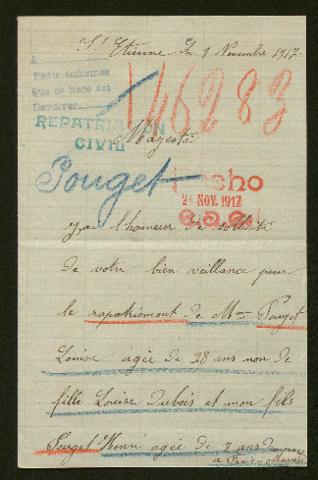 St Etienne le 1 Novembre 1917
A
Pedir informes
Que se hace así
Devolver
146283
REPATRIACION
CIVIL
Majesté
Pouget
Hecho
24 NOV. 1917
J'ai l'honneur de sollicité
de votre bien veillance pour
le rapatriement de Mme Pouget
Louise agée de 28 ans non de
fille Louise dubois et mon fils
Pouget Henri agée de 8 ans